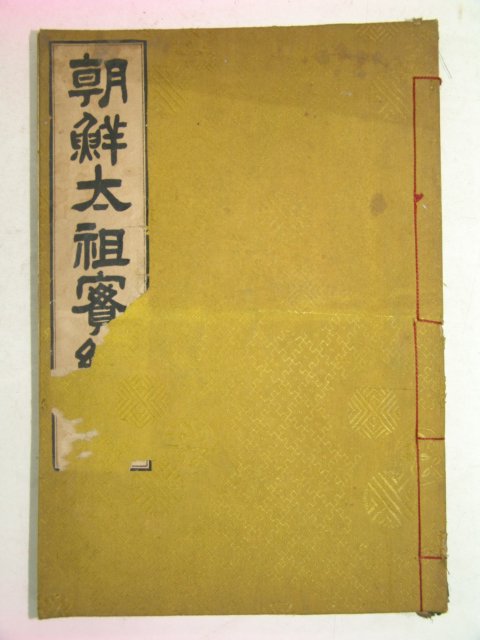 朝鮮太祖實